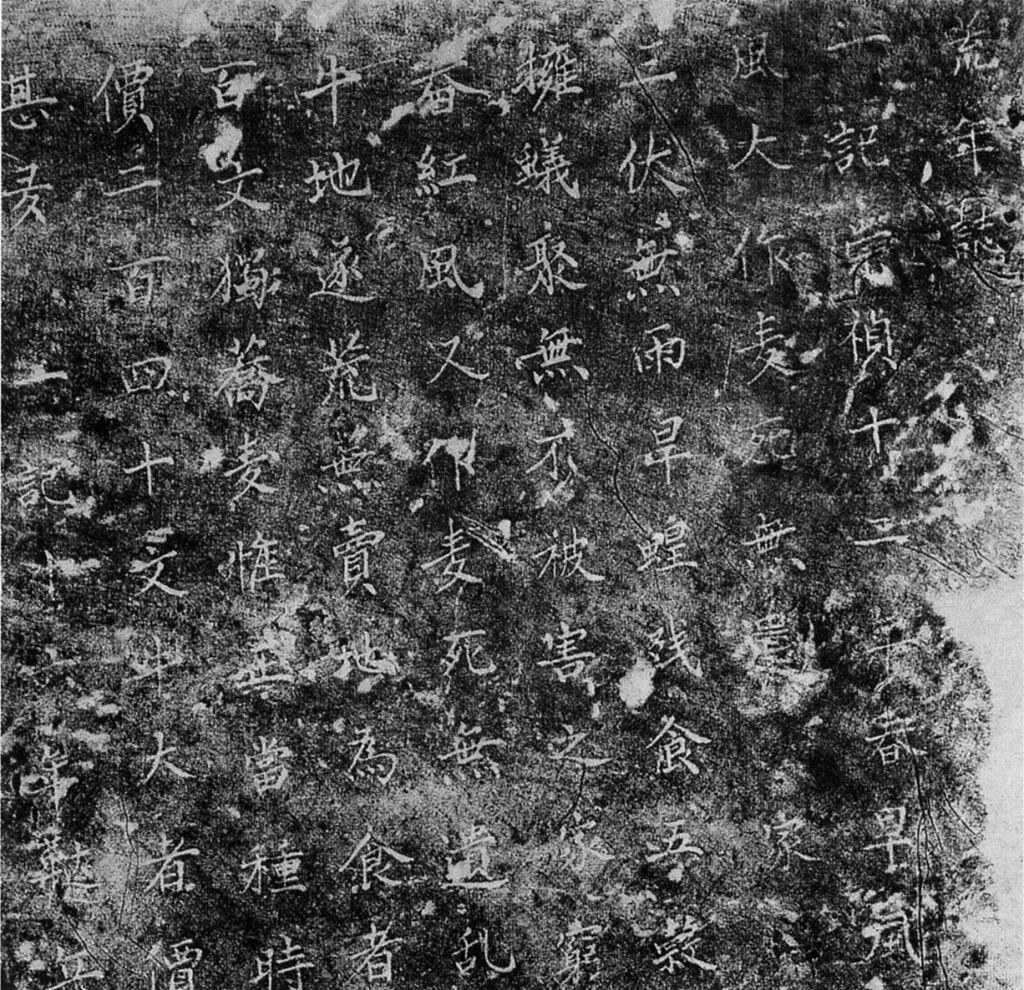 荒年誌
一記崇禎十二年春旱風
風大作麦死無遺
三伏無雨旱蝗残食五糓
擁蟻聚無不被害之家窮
奋紅風又作麦死無遺乱
牛地遂荒無賣地為食者
百文獨蕎麦惟甚當種時
價二百四十文牛大者價
甚
一記十年